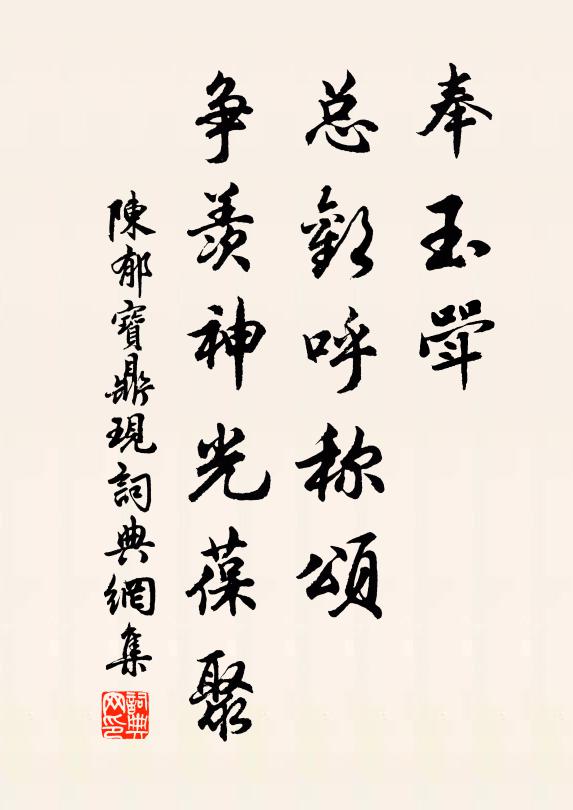 奉玉斝
总歡呼称頌
争羨神光葆聚
陳郁寶鼎現詞典網集
詞典网印